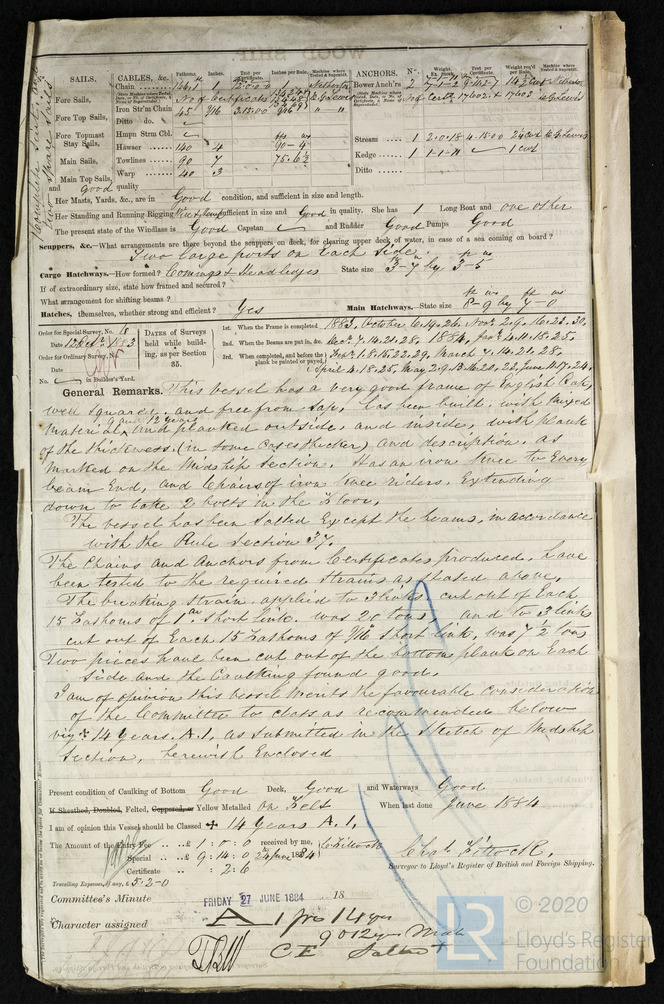 SAILS.
CABLES, &c. Fathoms. Inches. Test per Certificate. Inches per Rule. Machine where Tested & Suprntd.
ANCHORS. Nº Weight. Ex. Stock. Test per Certificate. Weight req'd per Rule. Machine where Tested & Suprntd.
Chain 1
Bower Anch'rs 2
Fore Sails,
Iron Str'm Chain 45 3.15.00
Fore Top Sails,
Ditto do.
Hmpn Strm Cbl.
Fore Topmast Stay Sails,
Hawser 140 4 90-4
Stream 1 2.0.18 4.15.00
Main Sails,
Towlines 90 7 75.6½
Kedge 1 1-1-11 1 cwt
Main Top Sails,
Warp 40 3
Ditto
and good quality
Her Masts, Yards, &c., are in Good condition, and sufficient in size and length.
Her Standing and Running Rigging sufficient in size and Good in quality. She has 1 Long Boat and one other
The present state of the Windlass is Good Capstan and Rudder Good Pumps Good
Scuppers, &c.—What arrangements are there beyond the scuppers on deck, for clearing upper deck of water, in case of a sea coming on board?
Two large ports on each Side.
Cargo Hatchways.—How formed? Comings & Headledges State size 3-7 by 3-5
If of extraordinary size, state how framed and secured?
What arrangement for shifting beams?
Main Hatchways.—State size 8-9 by 7-0
Hatches, themselves, whether strong and efficient? Yes
Order for Special Survey, No. 18
DATES of Surveys held while building, as per Section 35.
1st. When the Frame is completed 1883, October 6.14.26. Novr 2.9.16.23.30.
2nd. When the Beams are put in, &c. Decr 7.14.21.28, 1884, Jany 4.11.18.25.
Order for Ordinary Survey,
3rd. When completed, and before the plank be painted or payed Feby 1.8.15.22.29. March 7.14.21.28.
No. in Builder's Yard.
April 4.18.25. May 2.9. June
General Remarks. This vessel has a very good frame of English Oak,
well squared, and free from sap, has been built, with mixed
9 and 12 years
material, and planked outside, and inside, with plank
of the thickness, (in some cases thicker) and description, as
marked on the Midship section. Has an iron knee to every
beam End, and Chairs of iron knee riders, Extending
down to take 2 bolts in the floor,
The vessel has been Salted Except the beams, in accordance
with the Rule Section 37.
The Chains and Anchors from Certificates produced, have
been tested to the required strains as stated above,
The breaking strain applied to 3 links cut out of each
15 Fathoms of short link. was 20 tons, and to 3 links
cut out of Each 15 Fathoms of short link, was 7½ tons
Two pieces have been cut out of the bottom plank on Each
Side and the Caulking found good,
I am of opinion this vessel merits the favourable consideration
of the Committee to class as recommended below
viz 14 years. A.1, as submitted in the sketch of Midship
Section, herewith Enclosed
Present condition of Caulking of Bottom Good Deck, Good and Waterways Good
If Sheathed, Doubled, Felted, Coppered, or Yellow Metalled On Felt When last done June 1884
I am of opinion this Vessel should be Classed ✠ 14 Years A.1,
The Amount of the Entry Fee £ 1:0:0 received by me,
Special £ 9:14:0
Certificate : 2:6
Surveyor to Lloyd's Register of British and Foreign Shipping.
Travelling Expenses, if any, £ 5-2-0
Committee's Minute FRIDAY 27 JUNE 1884 18
Character assigned A 1 for 14 yrs
9 & 12 yrs Matl
C E Salted +
© 2020
LR
Lloyd's Register
Foundation